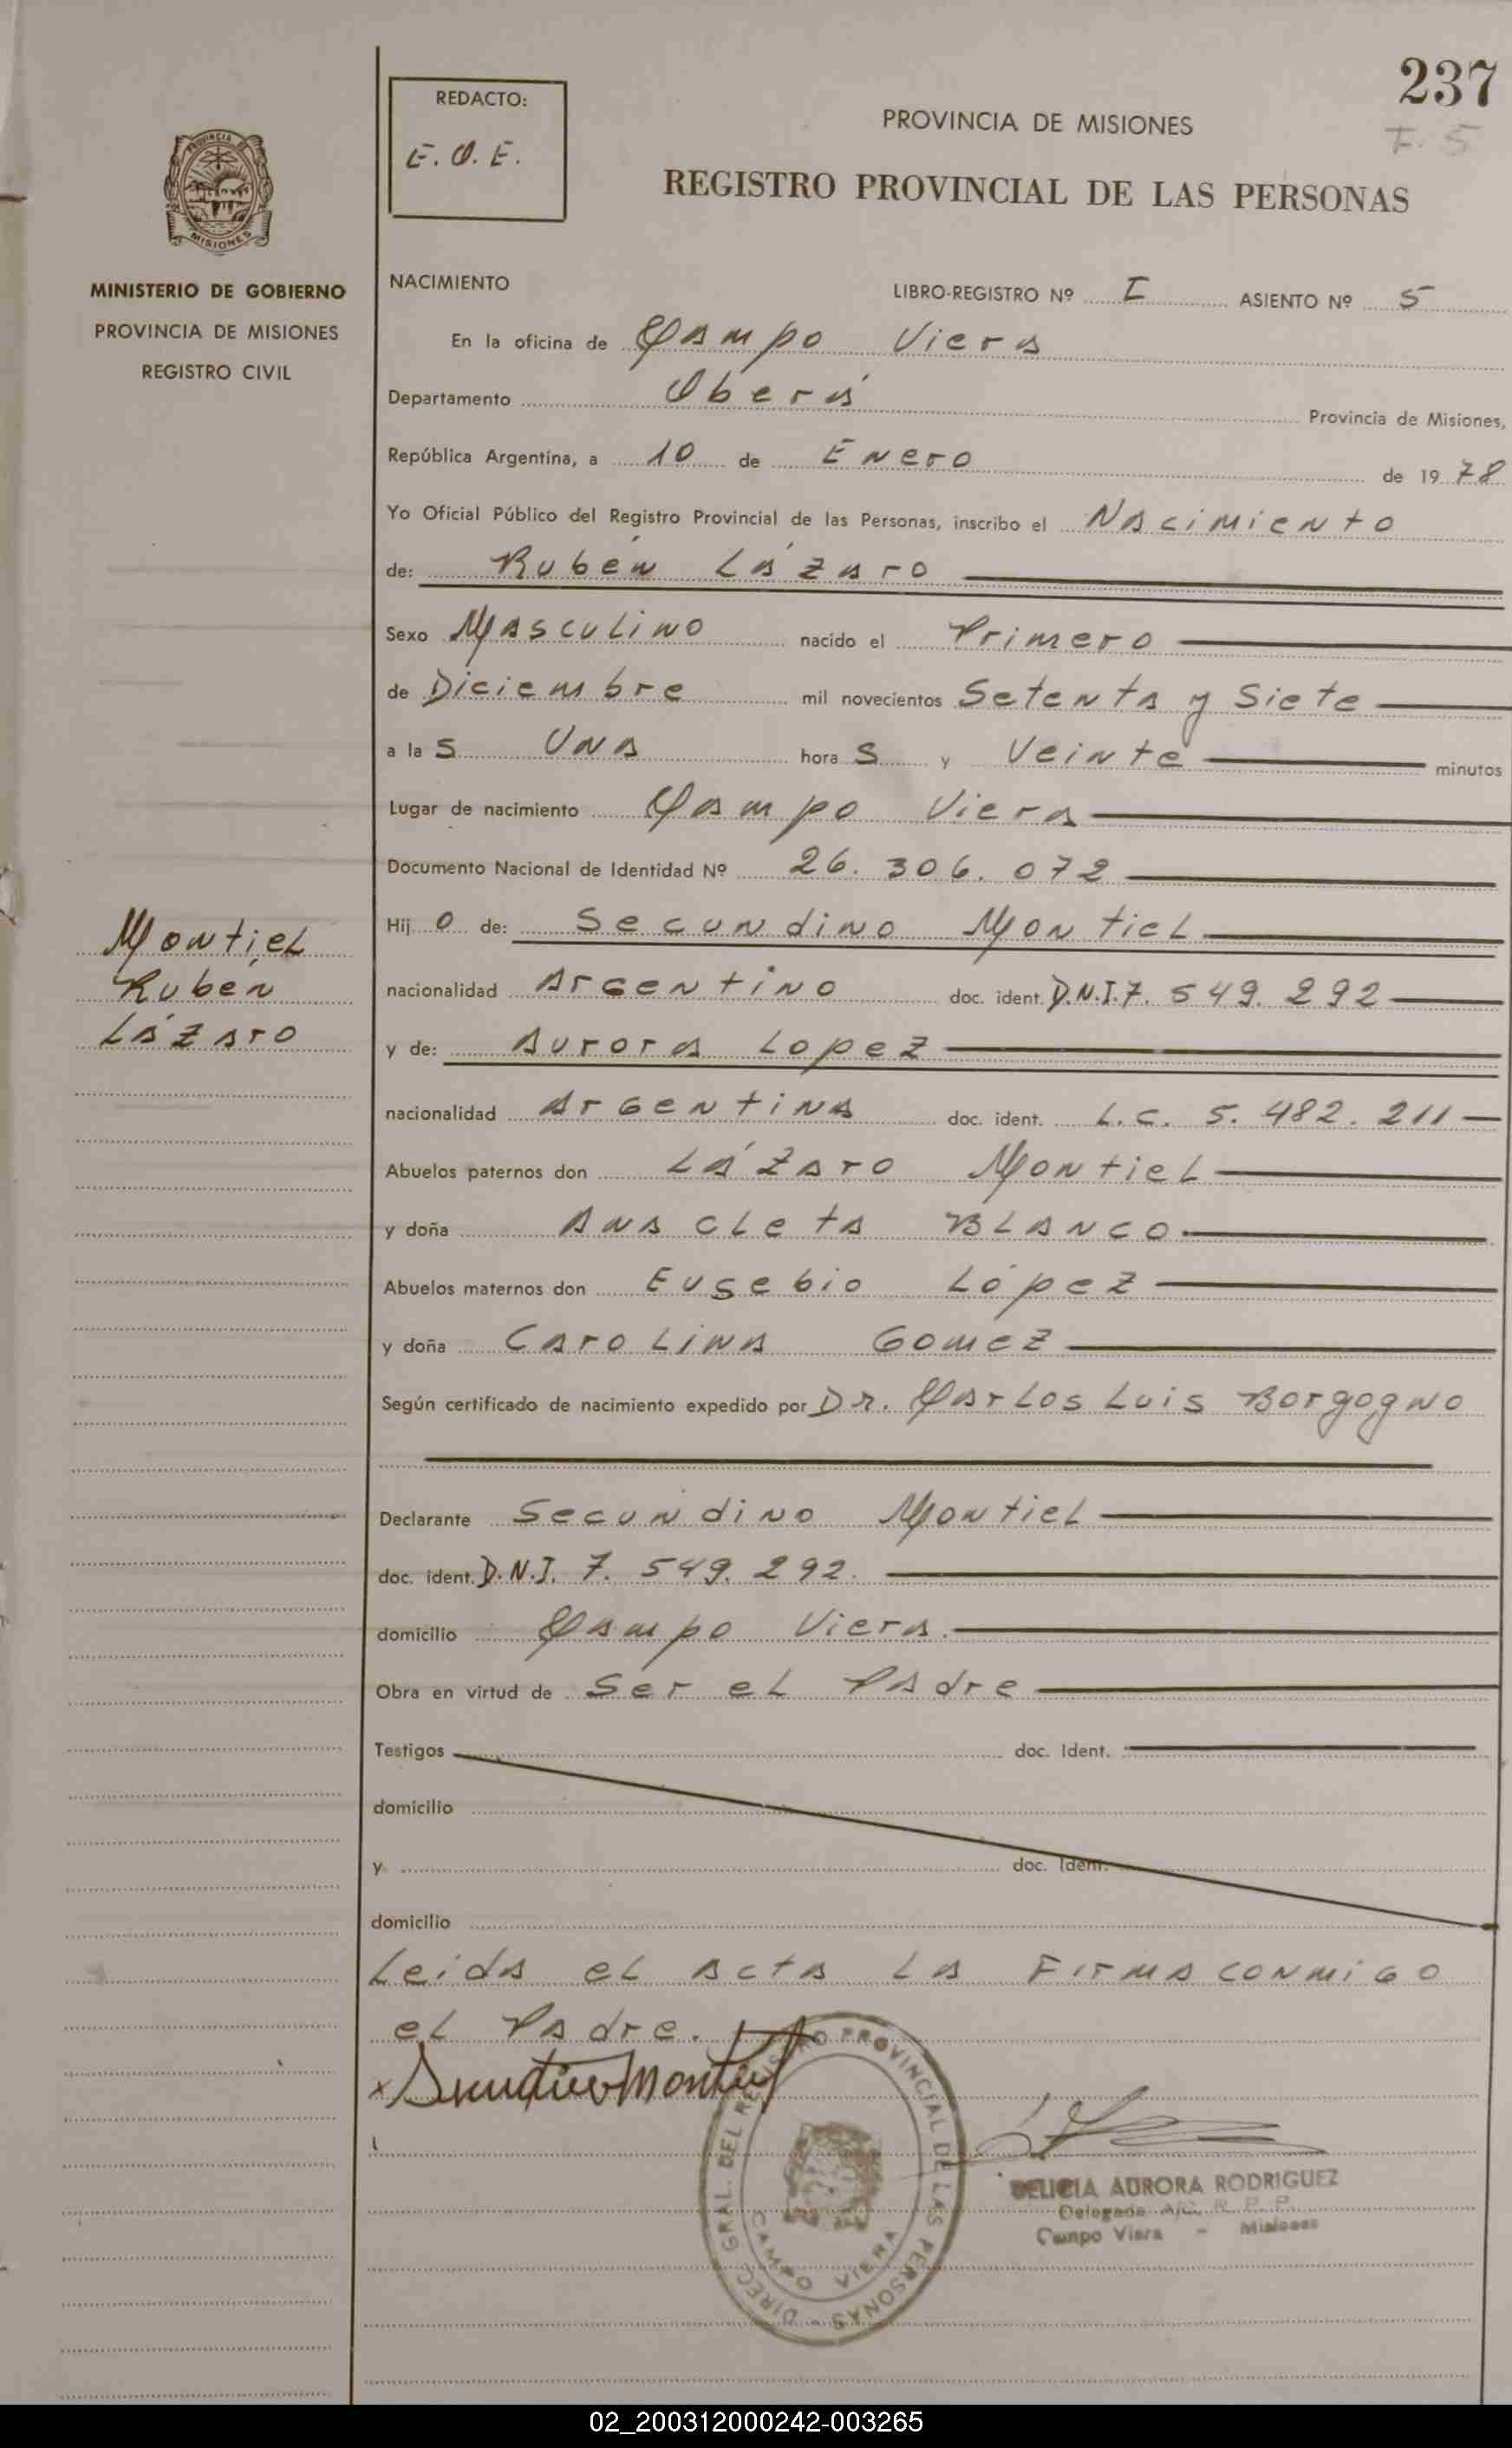 237
F. 5
REDACTO:
E.O.E.
PROVINCIA DE MISIONES
REGISTRO PROVINCIAL DE LAS PERSONAS
PROVINCIA DE
MISIONES
MINISTERIO DE GOBIERNO
PROVINCIA DE MISIONES
REGISTRO CIVIL
NACIMIENTO
LIBRO-REGISTRO Nº I ASIENTO Nº 5
En la oficina de Campo Viera
Departamento Oberá Provincia de Misiones,
República Argentina, a 10 de Enero de 19 78
Yo Oficial Público del Registro Provincial de las Personas, inscribo el Nacimiento
de: Rubén Lázaro
Sexo Masculino nacido el Primero
de Diciembre mil novecientos Setenta y Siete
a la s Una hora s y Veinte minutos
Lugar de nacimiento Campo Viera
Documento Nacional de Identidad Nº 26.306.072
Hij o de: Secundino Montiel
Montiel
Rubén
Lázaro
nacionalidad Argentino doc. ident. D.N.I. 7.549.292
y de: Aurora Lopez
nacionalidad Argentina doc. ident. L.C. 5.482.211
Abuelos paternos don Lázaro Montiel
y doña Anacleta Blanco
Abuelos maternos don Eusebio López
y doña Carolina Gomez
Según certificado de nacimiento expedido por Dr. Carlos Luis Borgogno
Declarante Secundino Montiel
doc. ident. D.N.I. 7.549.292.
domicilio Campo Viera.
Obra en virtud de Ser el Padre
Testigos doc. Ident.
domicilio
y doc. Ident.
domicilio
Leida el acta la Firma conmigo
el Padre.
x Secundino Montiel
DIREC. GRAL. DEL REGISTRO PROVINCIAL DE LAS PERSONAS
CAMPO VIERA
DELICIA AURORA RODRIGUEZ
Delegada A/C. R. P. P.
Campo Viera - Misiones
02_200312000242-003265